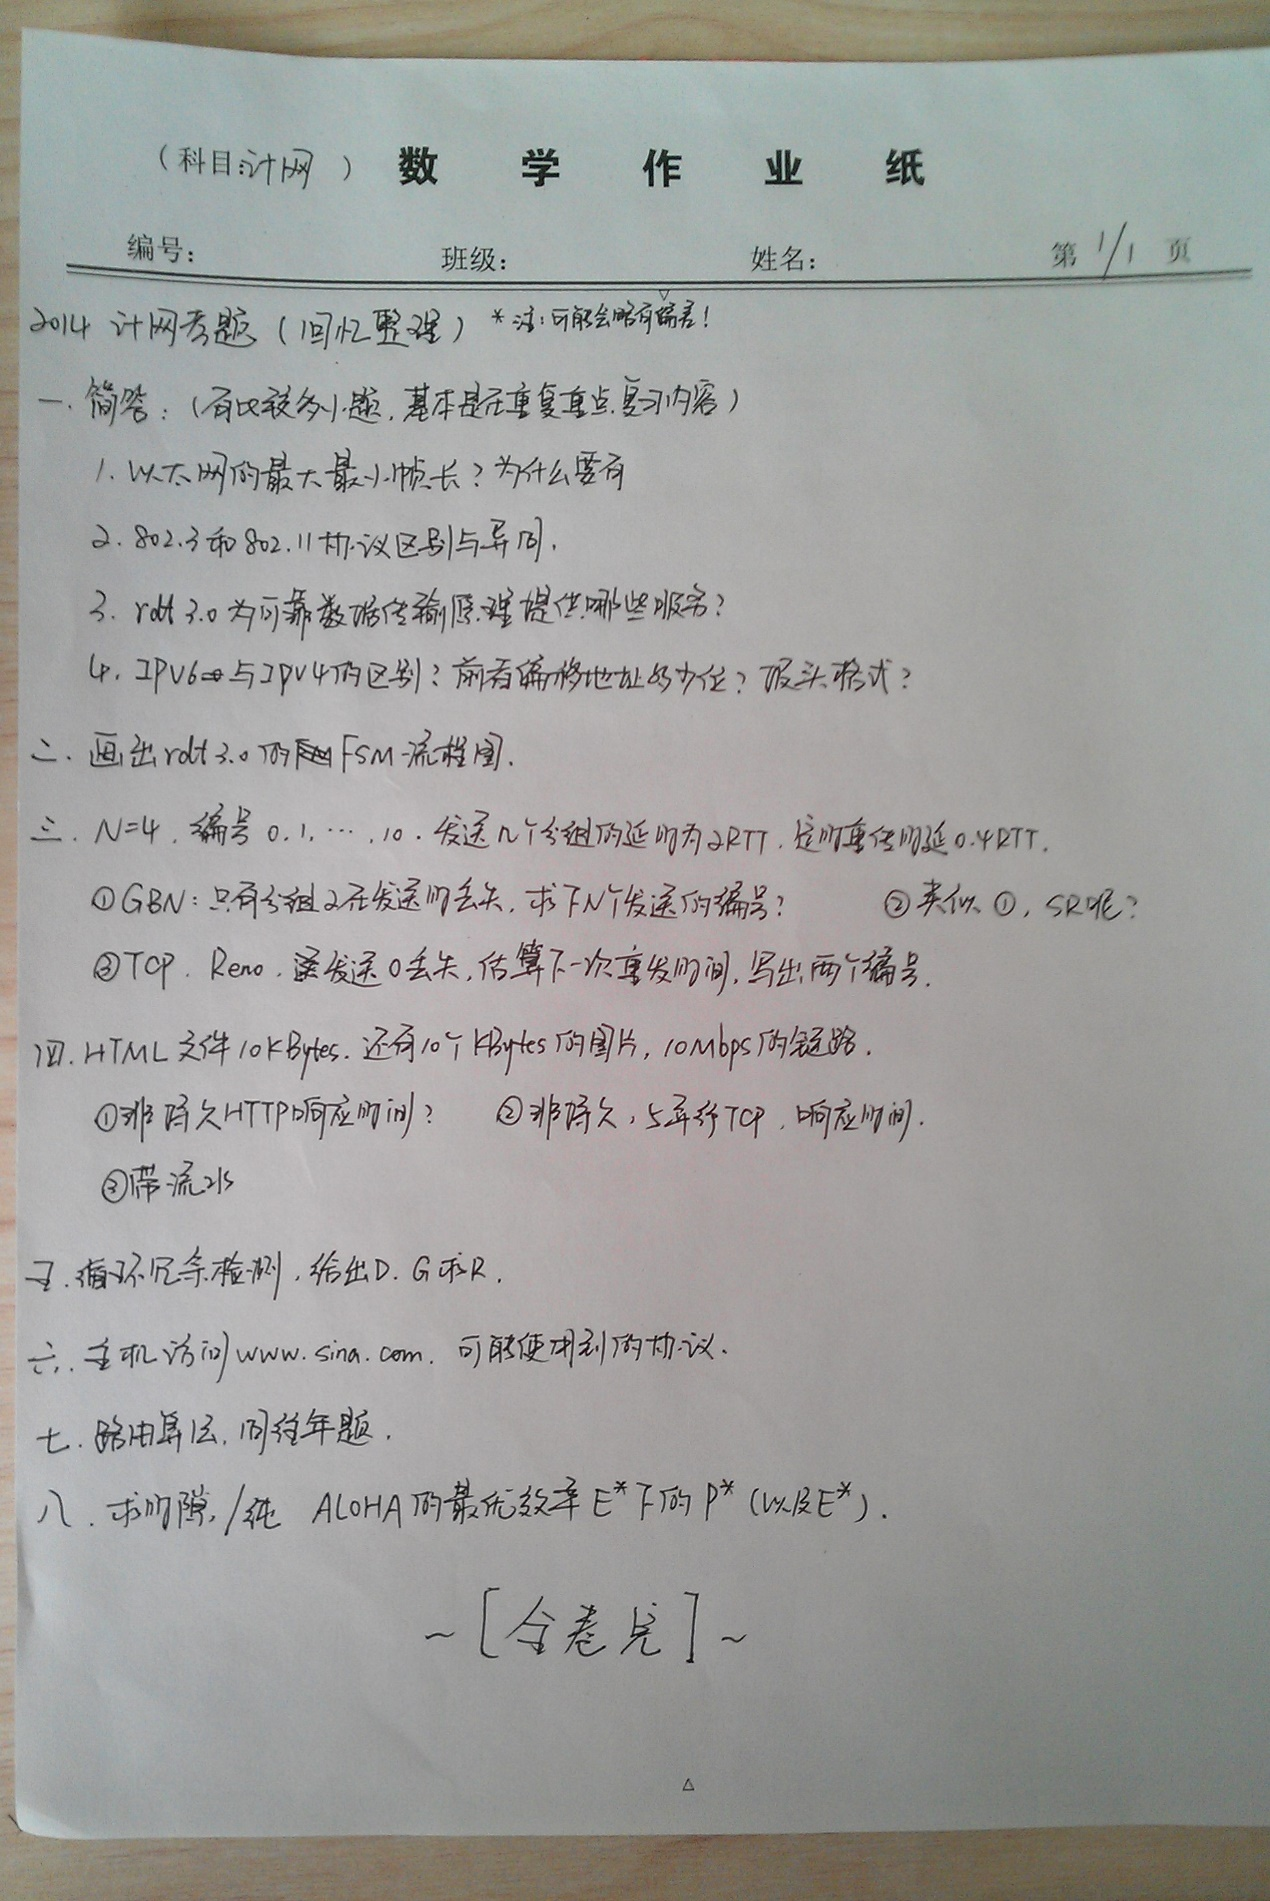 (科目:计网) 数学作业纸
编号: 班级: 姓名: 第1/1页
2014 计网考题(回忆整理) *注:可能会略有偏差!
一. 简答:(有比较多小题,基本是在重复重点复习内容)
1. 以太网的最大最小帧长?为什么要有
2. 802.3和802.11协议区别与异同.
3. rdt 3.0为可靠数据传输原理提供哪些服务?
4. IPV6与IPV4的区别?前者偏移地址多少位?报头格式?
二. 画出rdt 3.0的FSM流程图.
三. N=4. 编号0.1.…,10. 发送n个分组的延时为2RTT. 定时重传时延0.4RTT.
①GBN:只有分组2在发送时丢失,求下N个发送的编号? ②类似①,SR呢?
③TCP. Reno. 发送0丢失,估算下一次重发时间,写出两个编号.
四. HTML文件10KBytes. 还有10个KBytes的图片, 10Mbps的链路.
①非持久HTTP响应时间? ②非持久,5并行TCP,响应时间.
③带流水
五. 循环冗余检测,给出D. G求R.
六. 主机访问www.sina.com. 可能使用到的协议.
七. 路由算法,同往年题.
八. 求时隙/纯 ALOHA的最优效率E*下的P*(以及E*).
~[全卷完]~